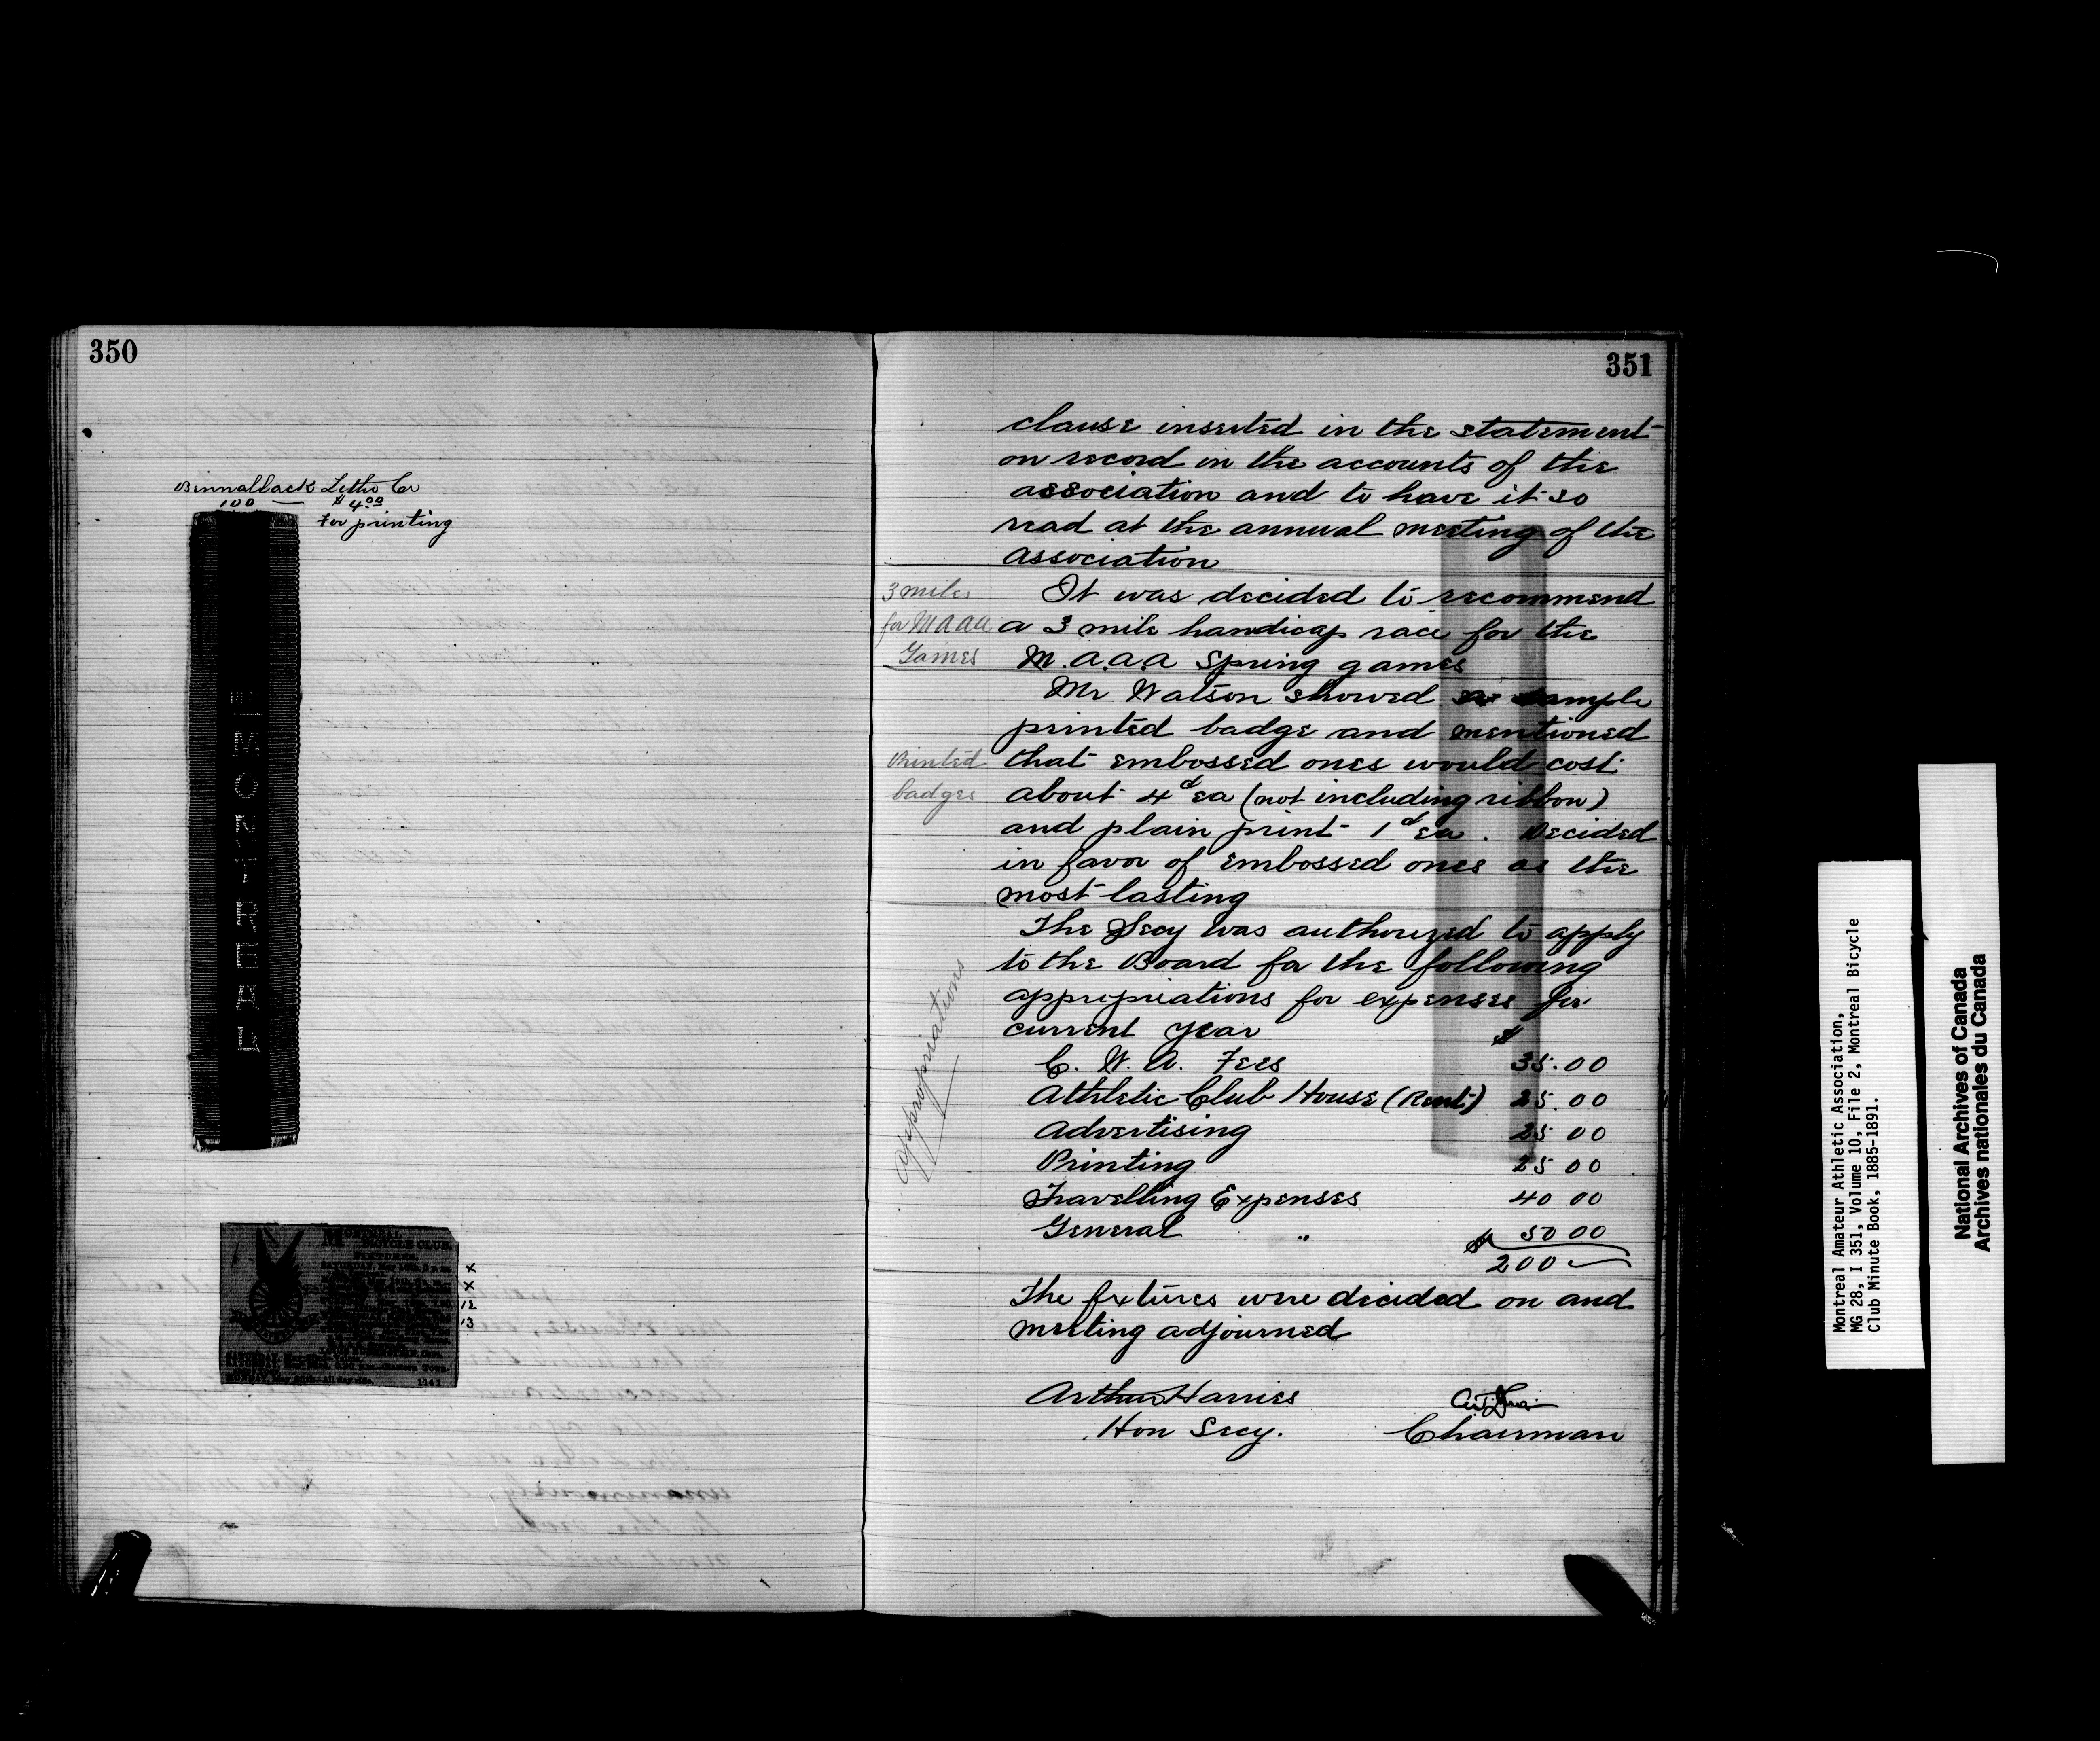 350
Binnallack Litho Co
100 — $4.00
For printing
MONTREAL
MONTREAL
BICYCLE CLUB.
FIXTURES.
SATURDAY, May
x
x
12
13
SATURDAY, May
MONDAY, May All day ride.
1141
351
clause inserted in the statement
on record in the accounts of the
association and to have it so
read at the annual meeting of the
association
3 miles
for MAAA
Games
It was decided to recommend
a 3 mile handicap race for the
M.A.A.A Spring games
Mr Watson showed a sample
printed badge and mentioned
Printed
badges
that embossed ones would cost
about 4d ea (not including ribbon)
and plain print 1d ea. Decided
in favor of embossed ones as the
most lasting
appropriations
The Secy was authorized to apply
to the Board for the following
appropriations for expenses for
current year $
C. W. A. Fees 35.00
Athletic Club House (Rent) 25.00
Advertising 25 00
Printing 25 00
Travelling Expenses 40 00
General " 50 00
$ 200 —
The fixtures were decided on and
meeting adjourned
Arthur Harries
Hon Secy.
Chairman
Montreal Amateur Athletic Association,
MG 28, I 351, Volume 10, File 2, Montreal Bicycle
Club Minute Book, 1885-1891.
National Archives of Canada
Archives nationales du Canada